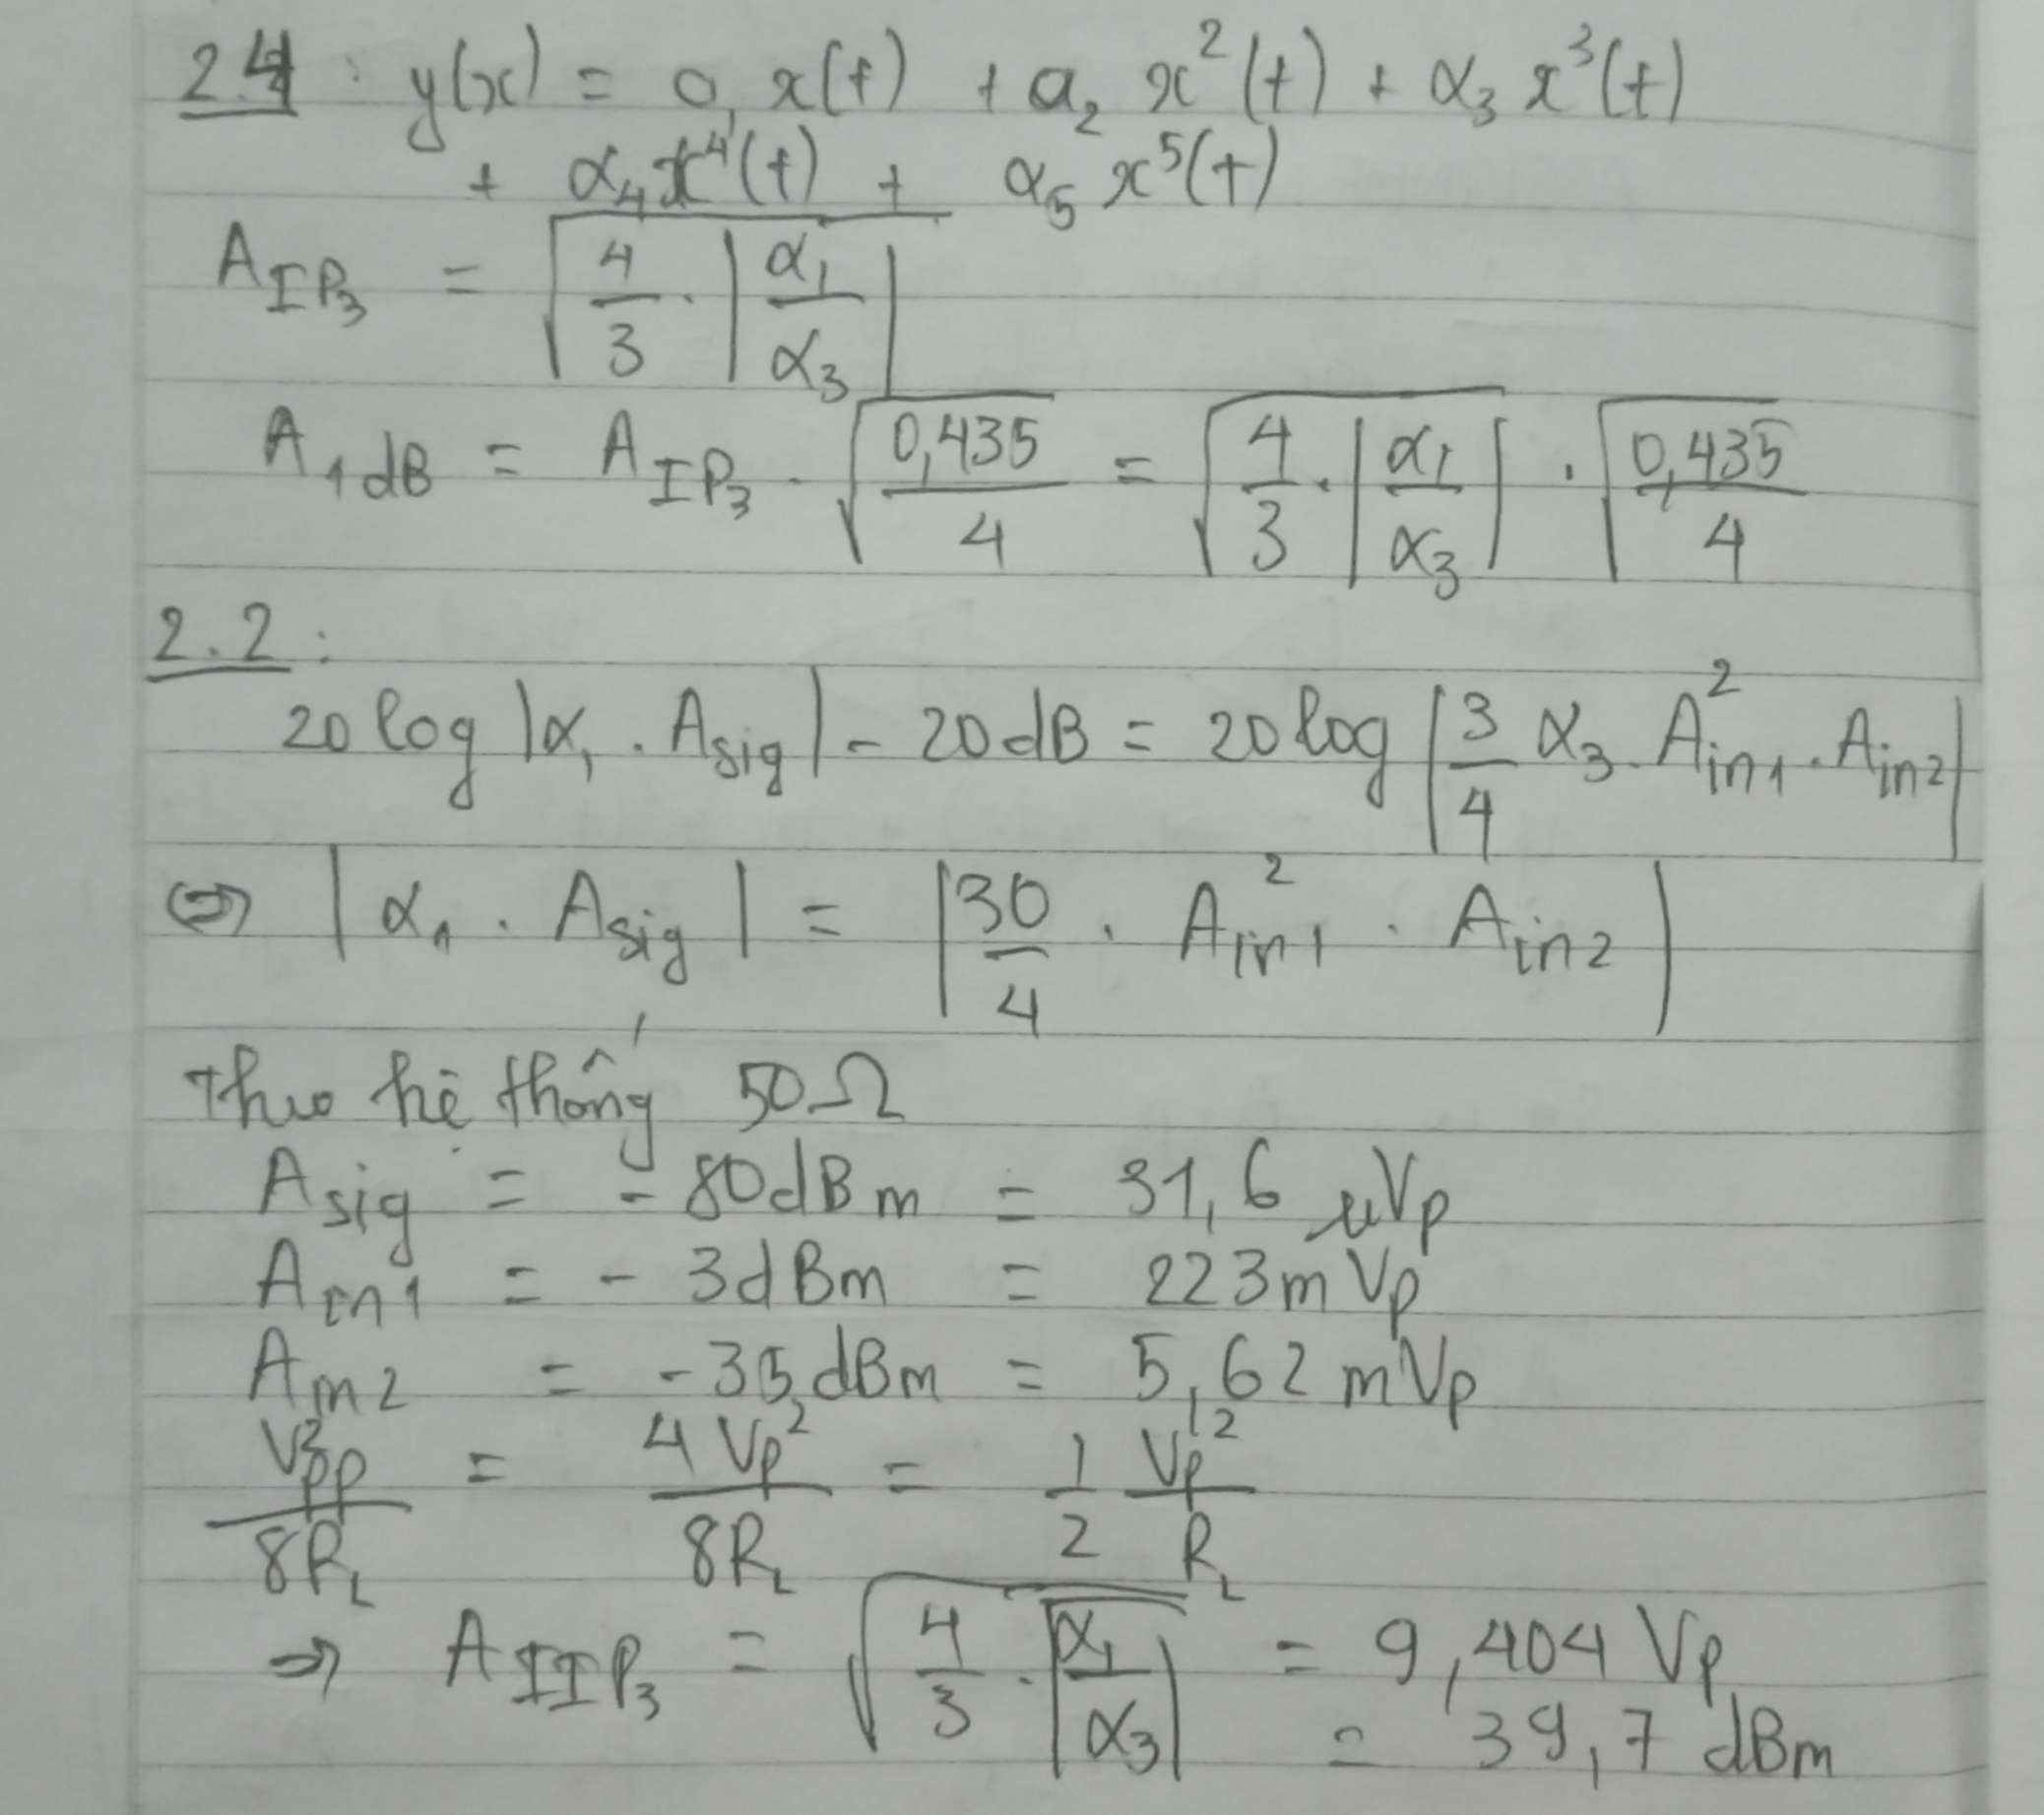 2.4 : y(x) = α₁ x(t) + a₂ x²(t) + α₃ x³(t)
+ α₄ x⁴(t) + α₅ x⁵(t)
A_IP₃ = √(4/3 · |α₁/α₃|)
A_1dB = A_IP₃ · √(0,435/4) = √(4/3 · |α₁/α₃|) · √(0,435/4)
2.2 :
20 log |α₁ . A_sig| - 20 dB = 20 log |3/4 α₃ . A²_in1 . A_in2|
⇔ |α₁ . A_sig| = |30/4 . A²_in1 . A_in2|
Theo hệ thống 50Ω
A_sig = - 80 dBm = 31,6 μVp
A_in1 = - 3 dBm = 223 m Vp
A_in2 = - 35 dBm = 5,62 mVp
V²pp/8R_L = 4 Vp²/8R_L = 1/2 Vp²/R_L
⇒ A_IIP₃ = √(4/3 · |α₁/α₃|) = 9,404 Vp
= 39,7 dBm